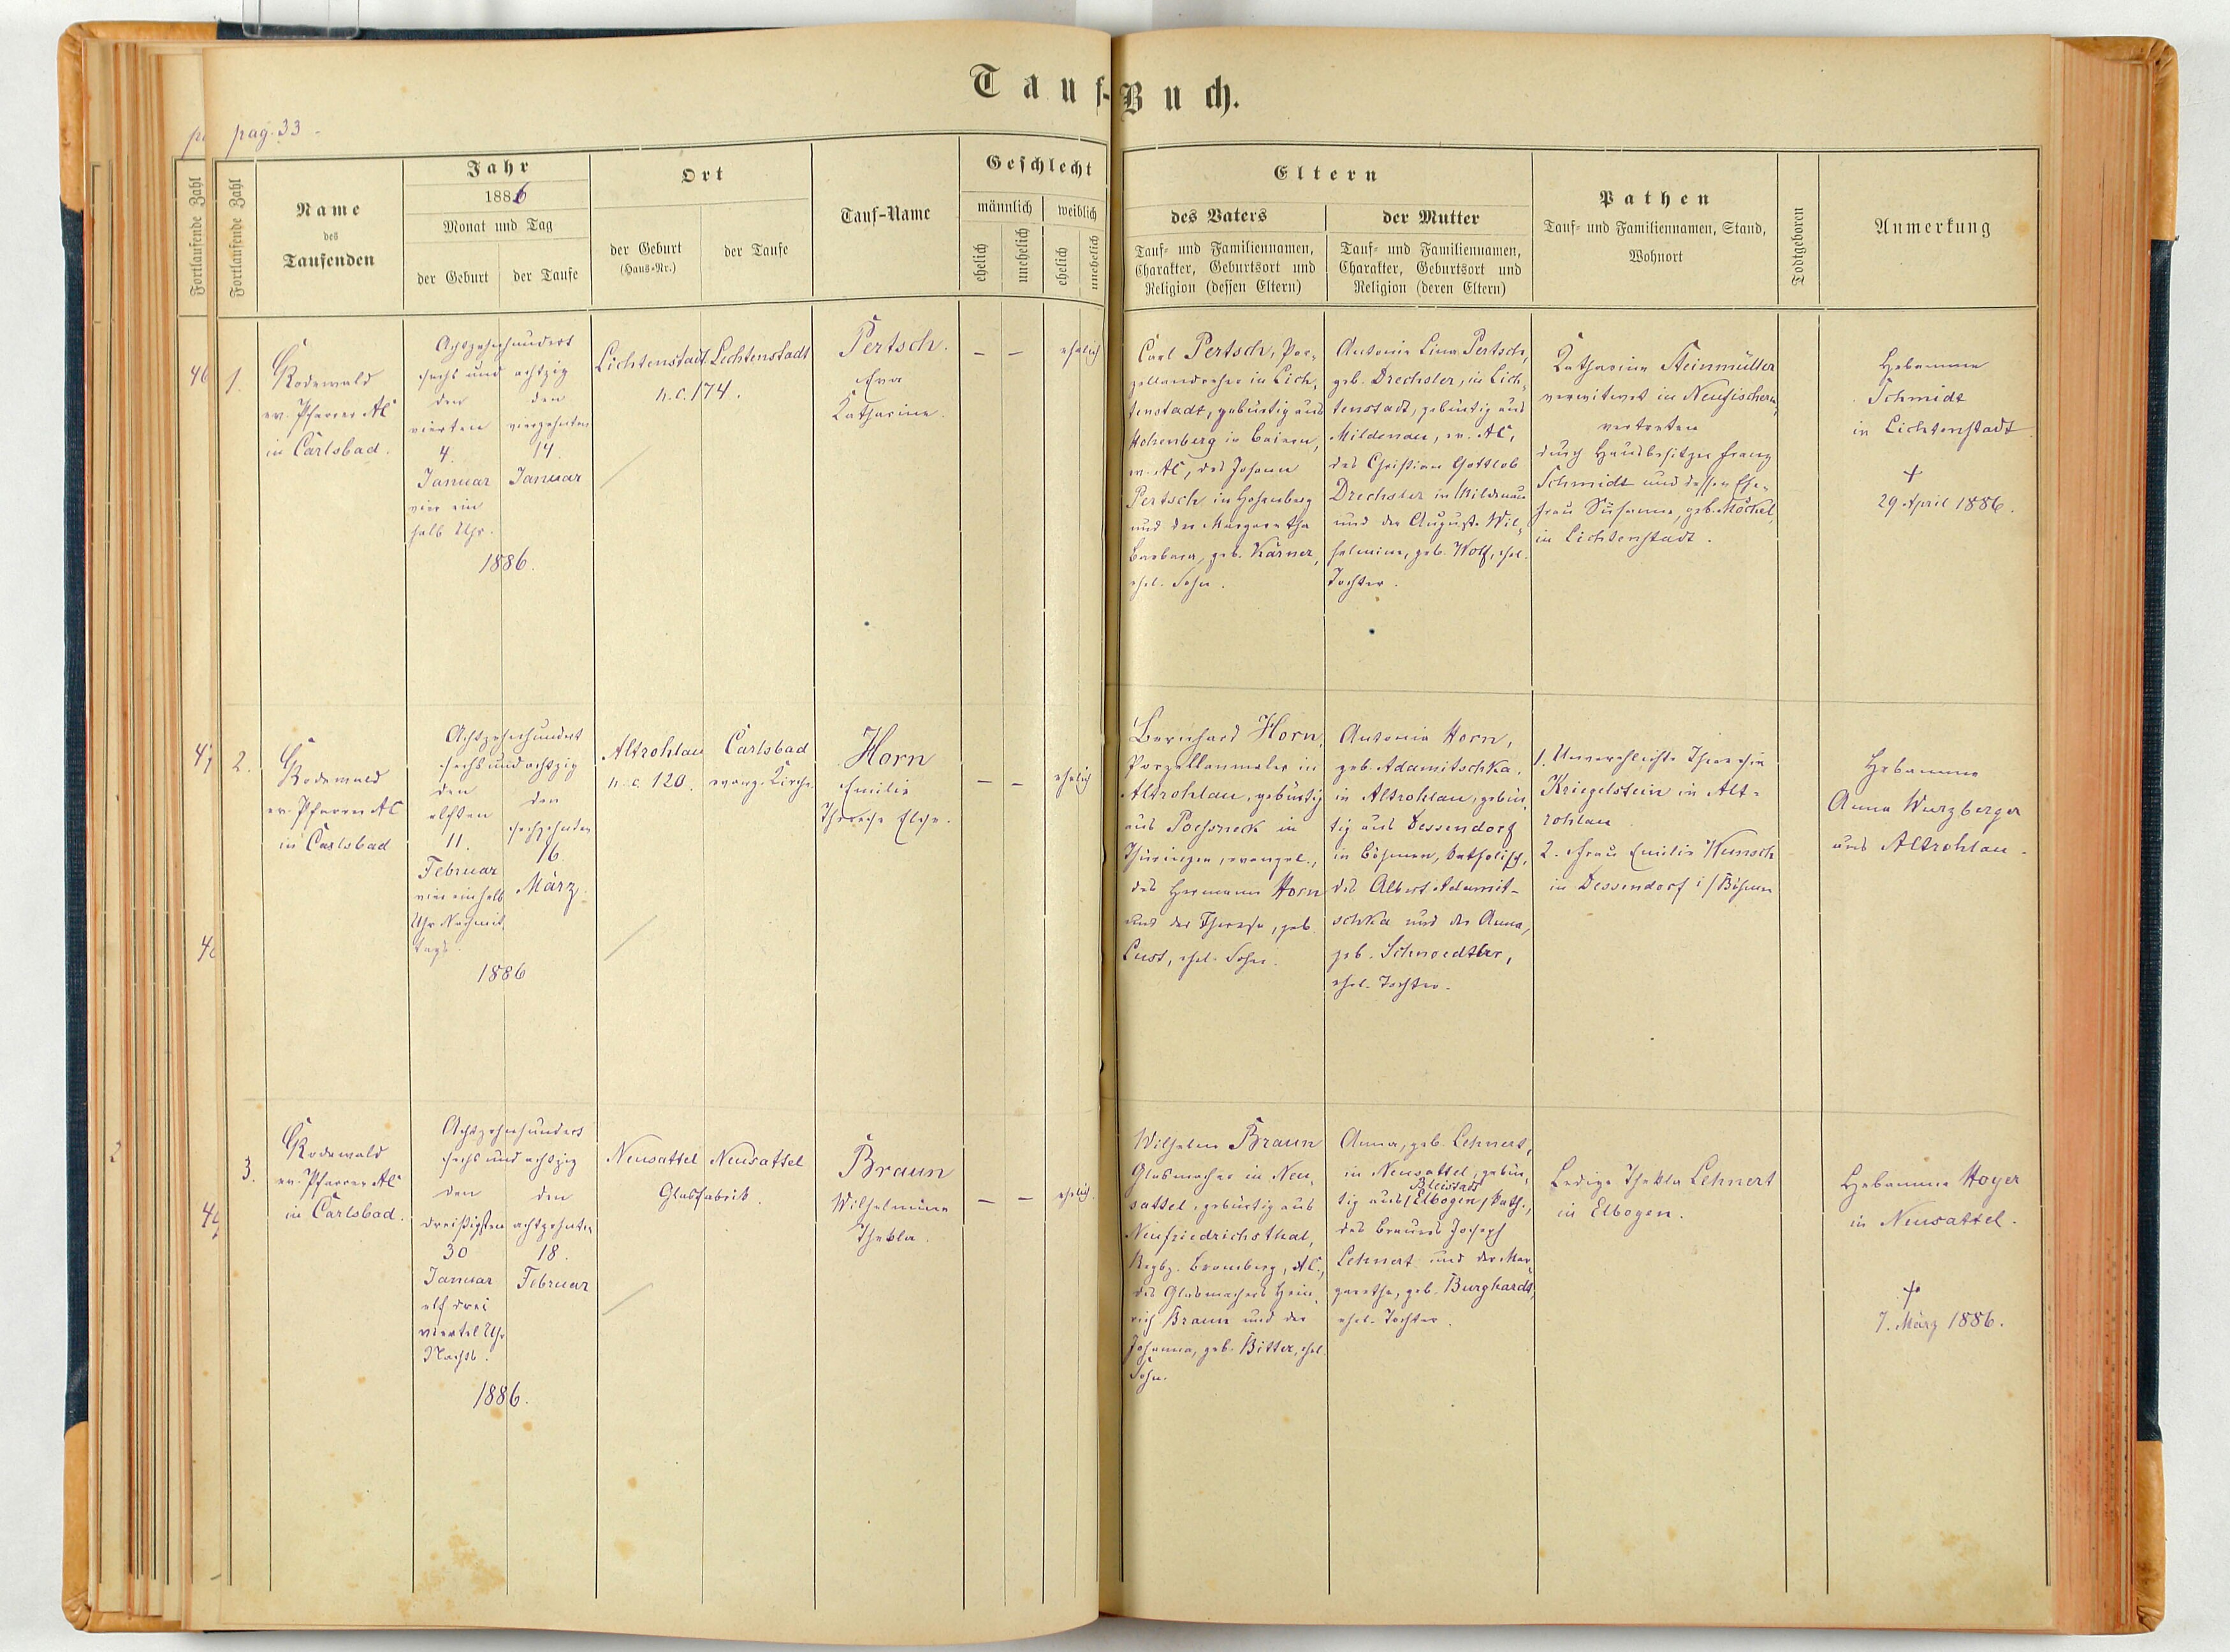 Tauf-Buch.
pag. 33
Fortlaufende Zahl
Fortlaufende Zahl
Name
des
Taufenden
Jahr
1886
Monat und Tag
der Geburt
der Taufe
Ort
der Geburt
(Haus-Nr.)
der Taufe
Tauf-Name
Geschlecht
männlich
weiblich
ehelich
unehelich
ehelich
unehelich
Eltern
des Vaters
Tauf- und Familiennamen,
Charakter, Geburtsort und
Religion (dessen Eltern)
der Mutter
Tauf- und Familiennamen,
Charakter, Geburtsort und
Religion (deren Eltern)
Pathen
Tauf- und Familiennamen, Stand,
Wohnort
Todtgeboren
Anmerkung
46
1.
Rodewald
ev. Pfarrer AC
in Carlsbad.
Achtzehnhundert
sechs und achtzig
den
vierten
4.
Januar
vier ein
halb Uhr.
den
vierzehnten
14.
Januar
1886.
Lichtenstadt
n.c. 174.
Lichtenstadt
Pertsch.
Eva
Katharina.
— —
ehelich
Carl Pertsch, Por-
zellandreher in Lich-
tenstadt, gebürtig aus
Hohenberg in Baiern,
ev. AC, des Johann
Pertsch in Hohenberg
und der Margaretha
Barbara, geb. Kärner,
ehel. Sohn.
Antonie Lina Pertsch,
geb. Drechsler, in Lich-
tenstadt, gebürtig aus
Mildenau, ev. AC,
des Christian Gottlob
Drechsler in Mildenau
und der Auguste Wil-
helmine, geb. Wolf, ehel.
Tochter.
Katharina Steinmüller
verwitwet in Neufischern,
vertreten
durch Hausbesitzer Franz
Schmidt und dessen Ehe-
frau Susanna, geb. Möckel,
in Lichtenstadt.
Hebamme
Schmidt
in Lichtenstadt
†
29. April 1886.
47
2.
Rodewald
ev. Pfarrer AC
in Carlsbad
Achtzehnhundert
sechs und achtzig
den
elften
11.
Februar
vier ein halb
Uhr Nachmit-
tags.
den
sechzehnten
16.
März.
1886
Altrohlau
n.c. 120.
Carlsbad
evang. Kirche.
Horn
Emilie
Therese Elsa.
— —
ehelich
Bernhard Horn,
Porzellanmaler in
Altrohlau, gebürtig
aus Poessneck in
Thüringen, evangel.,
des Hermann Horn
und der Therese, geb.
Lust, ehel. Sohn.
Antonia Horn,
geb. Adamitschka,
in Altrohlau, gebür-
tig aus Dessendorf
in Böhmen, katholisch,
des Albert Adamit-
schka und der Anna,
geb. Schnoedtler,
ehel. Tochter.
1. Unverehlichte Theresia
Kriegelstein in Alt-
rohlau
2. Frau Emilie Wunsch
in Dessendorf i/Böhmen
Hebamme
Anna Wurzberger
aus Altrohlau.
3.
Rodewald
ev. Pfarrer AC
in Carlsbad.
Achtzehnhundert
sechs und achtzig
den
dreißigsten
30
Januar
elf drei
viertel Uhr
Nachts.
den
achtzehnten
18.
Februar
1886.
Neusattel
Neusattel
Glasfabrik.
Braun
Wilhelmine
Thekla.
— —
ehelich.
Wilhelm Braun
Glasmacher in Neu-
sattel, gebürtig aus
Neufriedrichsthal,
Regbz. Bromberg, AC.,
des Glasmachers Hein-
rich Braun und der
Johanna, geb. Bitter, ehel.
Sohn.
Anna, geb. Lehnert,
in Neusattel, gebür-
Bleistadt
tig aus /Elbogen/ kath.,
des Brauers Joseph
Lehnert und der Mar-
garetha, geb. Burghardt,
ehel. Tochter.
Ledige Thekla Lehnert
in Elbogen.
Hebamme Hoyer
in Neusattel.
†
7. März 1886.